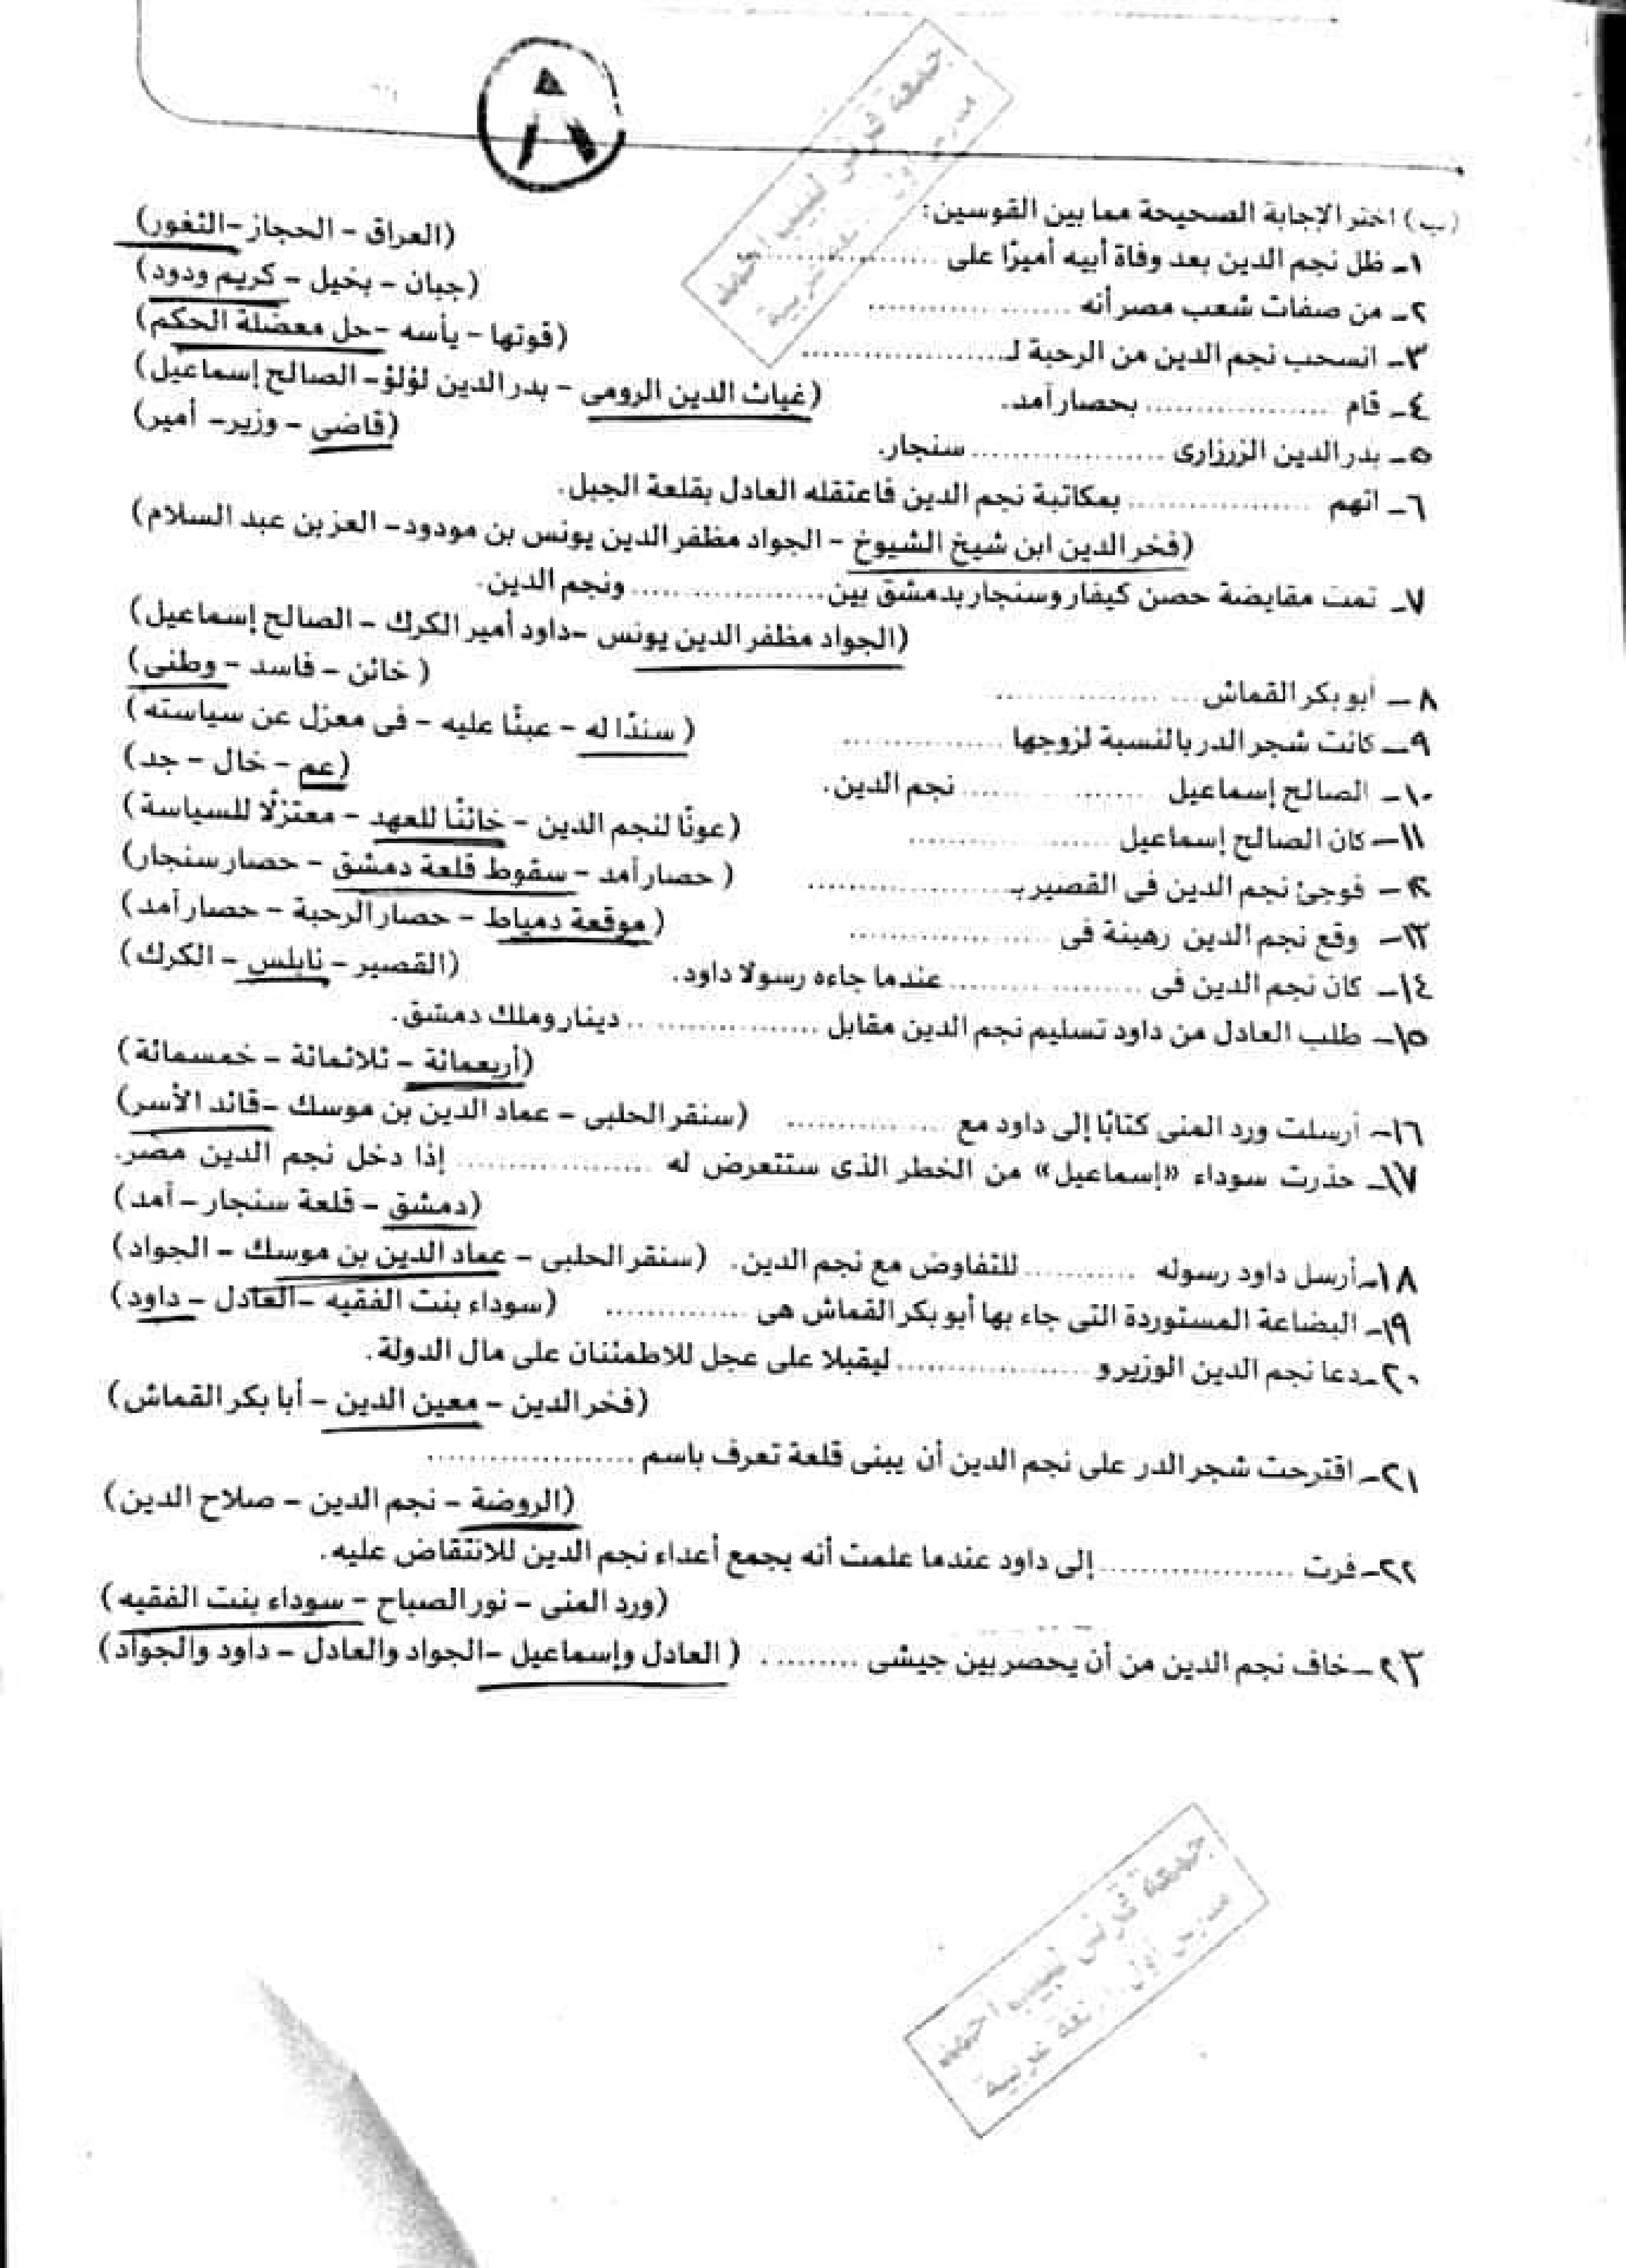 ٨
(ب) اختر الإجابة الصحيحة مما بين القوسين:
١- ظل نجم الدين بعد وفاة أبيه أميرًا على .................. (العراق - الحجاز - الثغور)
٢- من صفات شعب مصر أنه .................. (جبان - بخيل - كريم ودود)
٣- انسحب نجم الدين من الرحبة لـ .................. (قوتها - يأسه - حل معضلة الحكم)
٤- قام .................. بحصار آمد. (غياث الدين الرومى - بدر الدين لؤلؤ - الصالح إسماعيل)
٥- بدر الدين الزرزارى .................. سنجار. (قاضى - وزير - أمير)
٦- اتهم .................. بمكاتبة نجم الدين فاعتقله العادل بقلعة الجبل.
(فخر الدين ابن شيخ الشيوخ - الجواد مظفر الدين يونس بن مودود - العز بن عبد السلام)
٧- تمت مقايضة حصن كيفار وسنجار بدمشق بين .................. ونجم الدين.
(الجواد مظفر الدين يونس - داود أمير الكرك - الصالح إسماعيل)
٨- أبو بكر القماش .................. (خائن - فاسد - وطنى)
٩- كانت شجر الدر بالنسبة لزوجها .................. (سندًا له - عبئًا عليه - فى معزل عن سياسته)
١٠- الصالح إسماعيل .................. نجم الدين. (عم - خال - جد)
١١- كان الصالح إسماعيل .................. (عونًا لنجم الدين - خائنًا للعهد - معتزلًا للسياسة)
١٢- فوجئ نجم الدين فى القصير بـ .................. (حصار آمد - سقوط قلعة دمشق - حصار سنجار)
١٣- وقع نجم الدين رهينة فى .................. (موقعة دمياط - حصار الرحبة - حصار آمد)
١٤- كان نجم الدين فى .................. عندما جاءه رسولا داود. (القصير - نابلس - الكرك)
١٥- طلب العادل من داود تسليم نجم الدين مقابل .................. دينار وملك دمشق.
(أربعمائة - ثلاثمائة - خمسمائة)
١٦- أرسلت ورد المنى كتابًا إلى داود مع .................. (سنقر الحلبى - عماد الدين بن موسك - قائد الأسر)
١٧- حذرت سوداء «إسماعيل» من الخطر الذى ستتعرض له .................. إذا دخل نجم الدين مصر.
(دمشق - قلعة سنجار - آمد)
١٨- أرسل داود رسوله .................. للتفاوض مع نجم الدين. (سنقر الحلبى - عماد الدين بن موسك - الجواد)
١٩- البضاعة المستوردة التى جاء بها أبو بكر القماش هى .................. (سوداء بنت الفقيه - العادل - داود)
٢٠- دعا نجم الدين الوزير و .................. ليقبلا على عجل للاطمئنان على مال الدولة.
(فخر الدين - معين الدين - أبا بكر القماش)
٢١- اقترحت شجر الدر على نجم الدين أن يبنى قلعة تعرف باسم ..................
(الروضة - نجم الدين - صلاح الدين)
٢٢- فرت .................. إلى داود عندما علمت أنه يجمع أعداء نجم الدين للانتقاض عليه.
(ورد المنى - نور الصباح - سوداء بنت الفقيه)
٢٣- خاف نجم الدين من أن يحصر بين جيشى ......... (العادل وإسماعيل - الجواد والعادل - داود والجواد)
جمعة قرنى لبيب احمد
مدرس أول لغة عربية